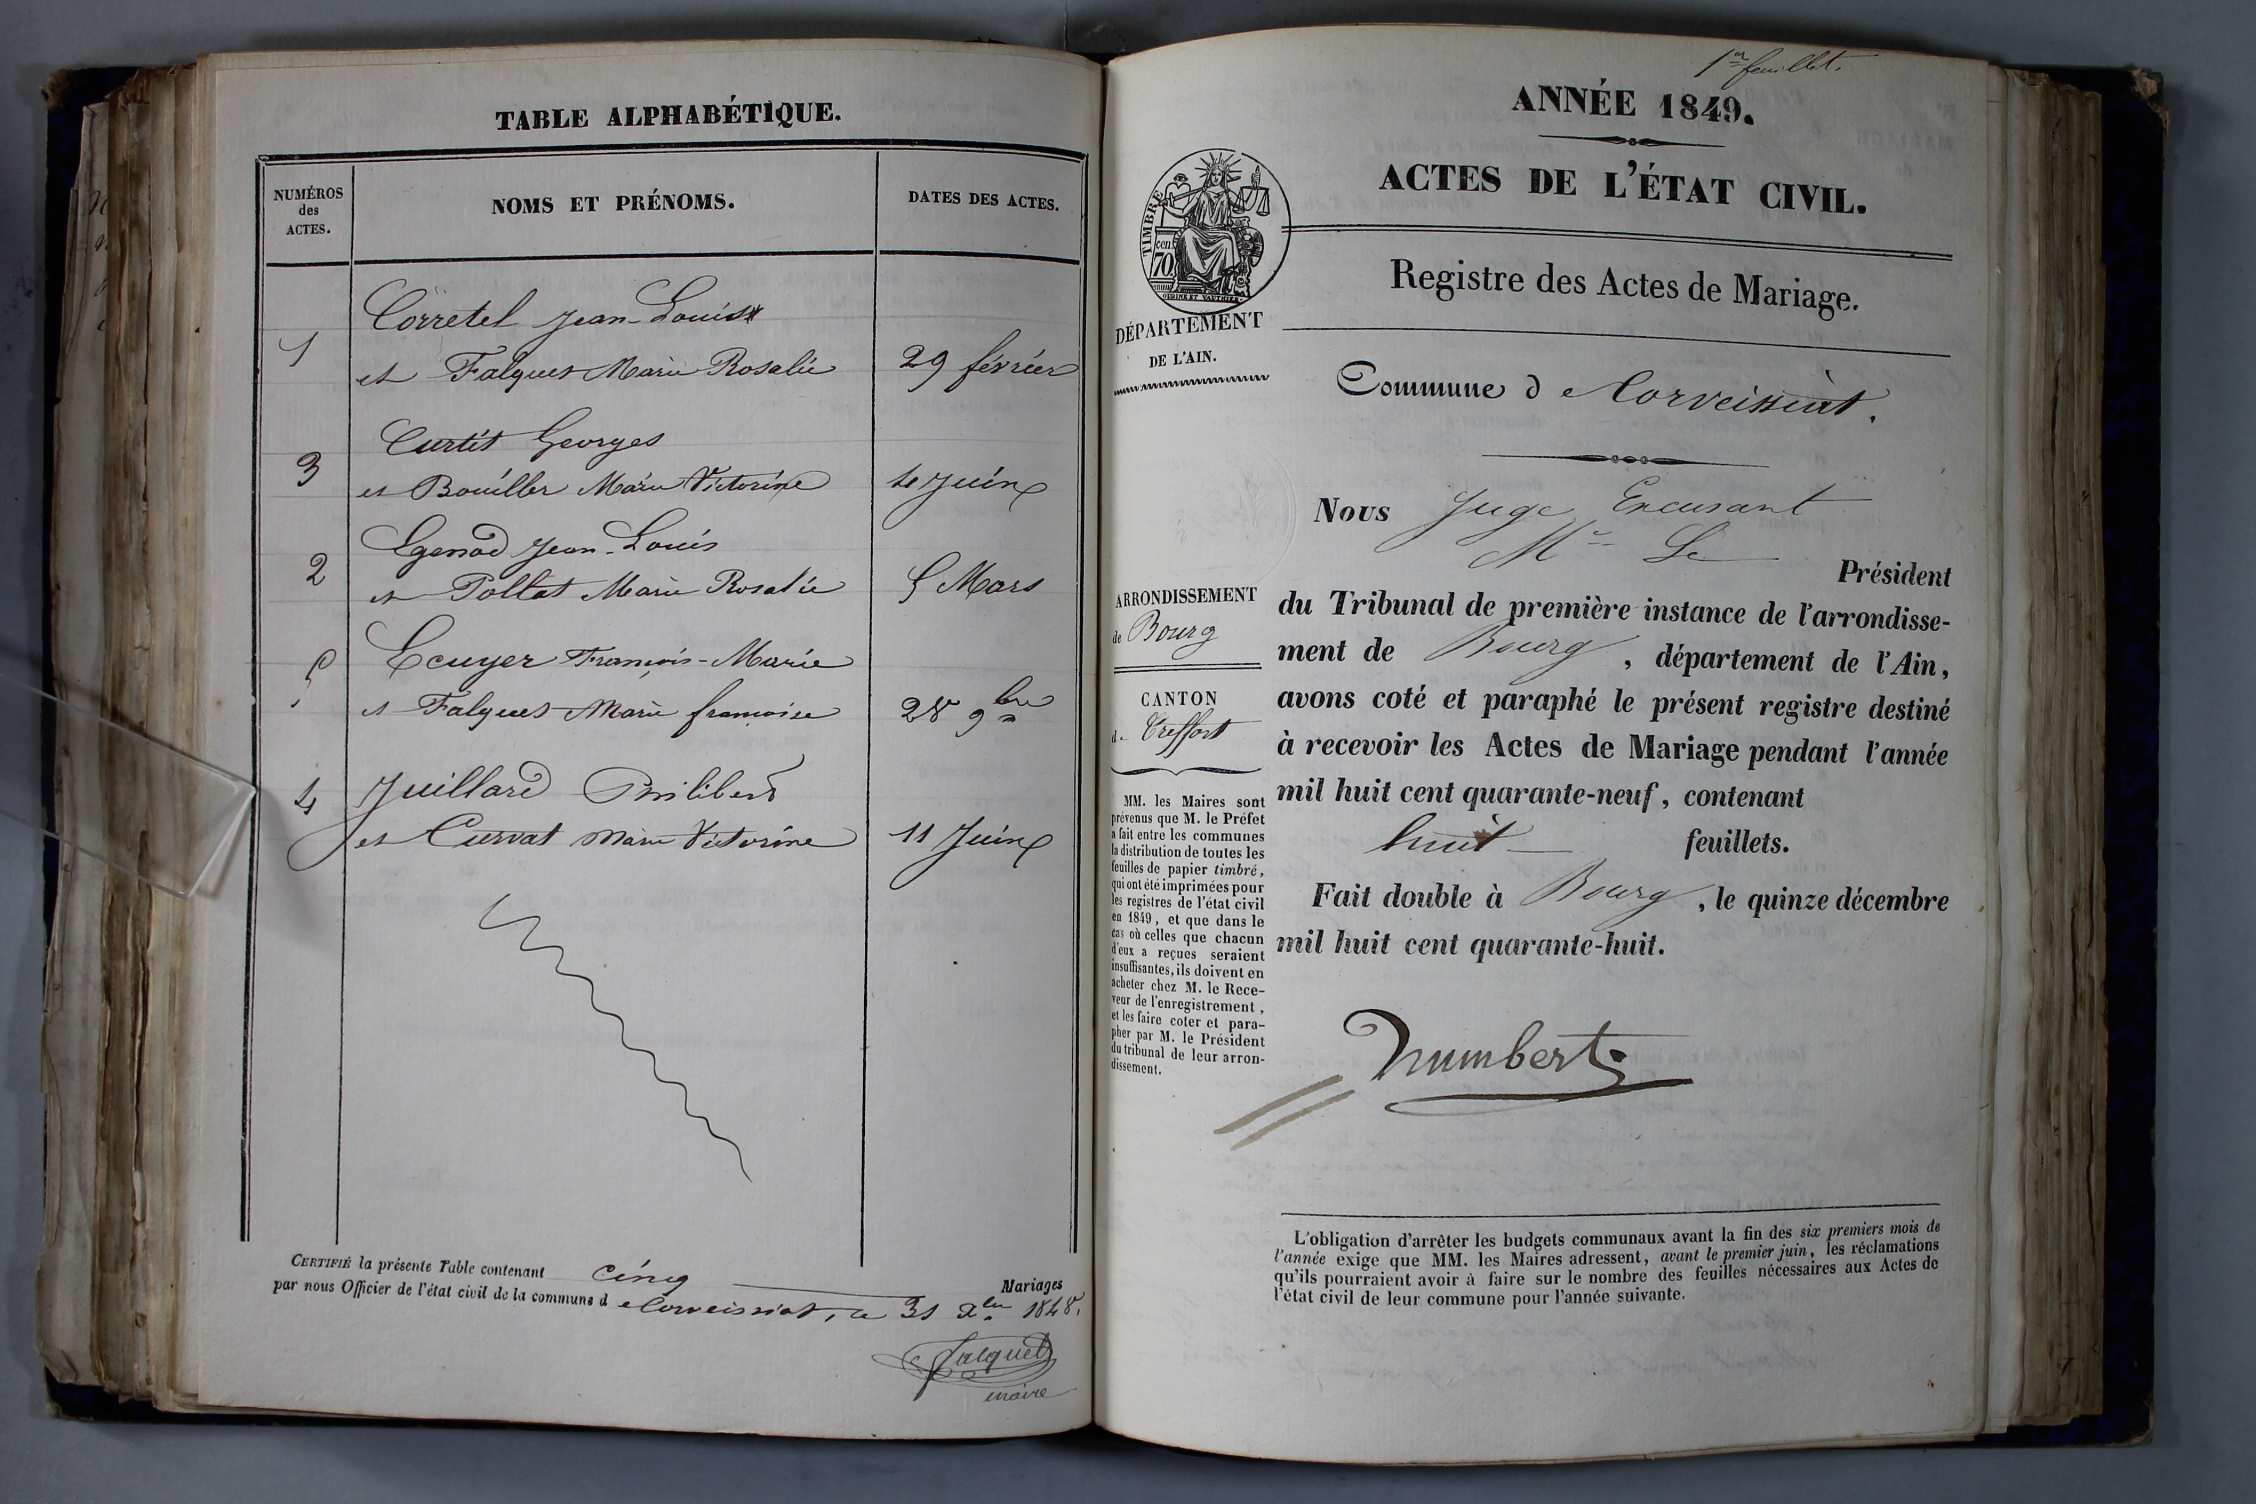 TABLE ALPHABÉTIQUE.
NUMÉROS
des
ACTES.
NOMS ET PRÉNOMS.
DATES DES ACTES.
Corretel Jean-Louis
1 et Falquet Marie Rosalie 29 février
Curtit Georges
3 et Bouiller Marie Victorine 4 Juin
Egenod Jean-Louis
2 et Pollat Marie Rosalie 5 Mars
5 Ecuyer François-Marie
et Falquet Marie françoise 28 9bre
4 Juillard Philibert
et Curvat Marie Victorine 11 Juin
CERTIFIÉ la présente Table contenant cinq Mariages
par nous Officier de l'état civil de la commune d e Corveissiat, ce 31 Xbre 1848.
Falquet
maire
1er feuillet.
ANNÉE 1849.
ACTES DE L'ÉTAT CIVIL.
TIMBRE
70 cen.
Registre des Actes de Mariage.
DÉPARTEMENT
DE L'AIN.
Commune d e Corveissiat.
Nous Juge Encusant
Mr Le
Président
du Tribunal de première instance de l'arrondisse-
ment de Bourg, département de l'Ain,
avons coté et paraphé le présent registre destiné
à recevoir les Actes de Mariage pendant l'année
mil huit cent quarante-neuf, contenant
huit feuillets.
Fait double à Bourg, le quinze décembre
mil huit cent quarante-huit.
humbert
ARRONDISSEMENT
de Bourg
CANTON
de Treffort
MM. les Maires sont
prévenus que M. le Préfet
a fait entre les communes
la distribution de toutes les
feuilles de papier timbré,
qui ont été imprimées pour
les registres de l'état civil
en 1849, et que dans le
cas où celles que chacun
d'eux a reçues seraient
insuffisantes, ils doivent en
acheter chez M. le Rece-
veur de l'enregistrement,
et les faire coter et para-
pher par M. le Président
du tribunal de leur arron-
dissement.
L'obligation d'arrêter les budgets communaux avant la fin des six premiers mois de
l'année exige que MM. les Maires adressent, avant le premier juin, les réclamations
qu'ils pourraient avoir à faire sur le nombre des feuilles nécessaires aux Actes de
l'état civil de leur commune pour l'année suivante.